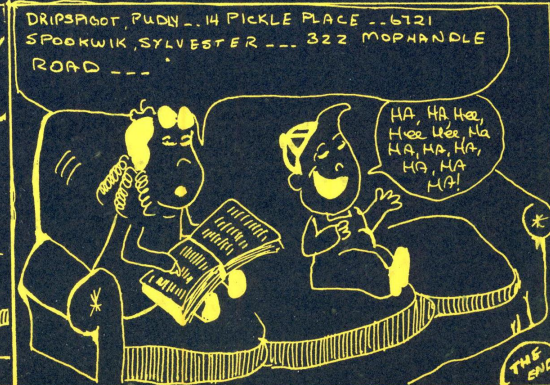 DRIPSPIGOT, PUDLY... 14 PICKLE PLACE --6721
SPOOKWIK, SYLVESTER --- 322 MOPHANDLE
ROAD ---
HA, HA Hee,
Hee Hee, Ha
HA, HA, HA,
HA, HA
HA!
THE
END